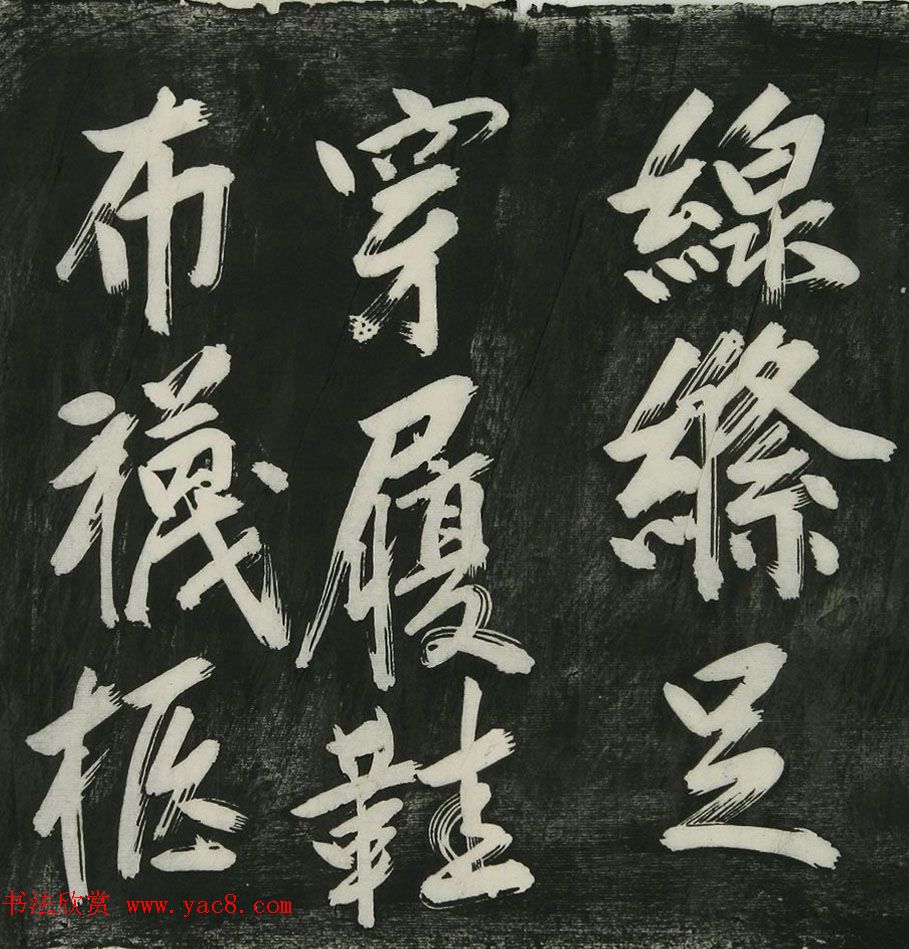 線縧足
穿履鞋
布襪框
书法欣赏 www.yac8.com